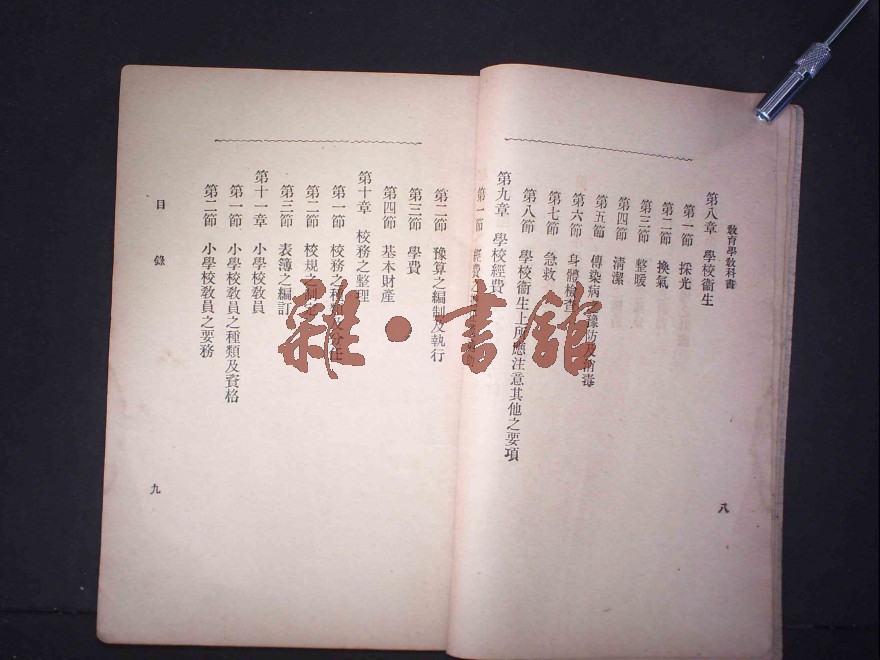 教育學教科書
第八章 學校衞生
第一節 採光
第二節 換氣
第三節 整暖
第四節 清潔
第五節 傳染病 豫防及消毒
第六節 身體檢查
第七節 急救
第八節 學校衞生上所應注意其他之要項
第九章 學校經費
八
第一節 經費之
第二節 豫算之編制及執行
第三節 學費
第四節 基本財產
第十章 校務之整理
第一節 校務之種類及分任
第二節 校規之制
第三節 表簿之編訂
第十一章 小學校敎員
第一節 小學校敎員之種類及資格
第二節 小學校敎員之要務
目錄
九
雜·書館